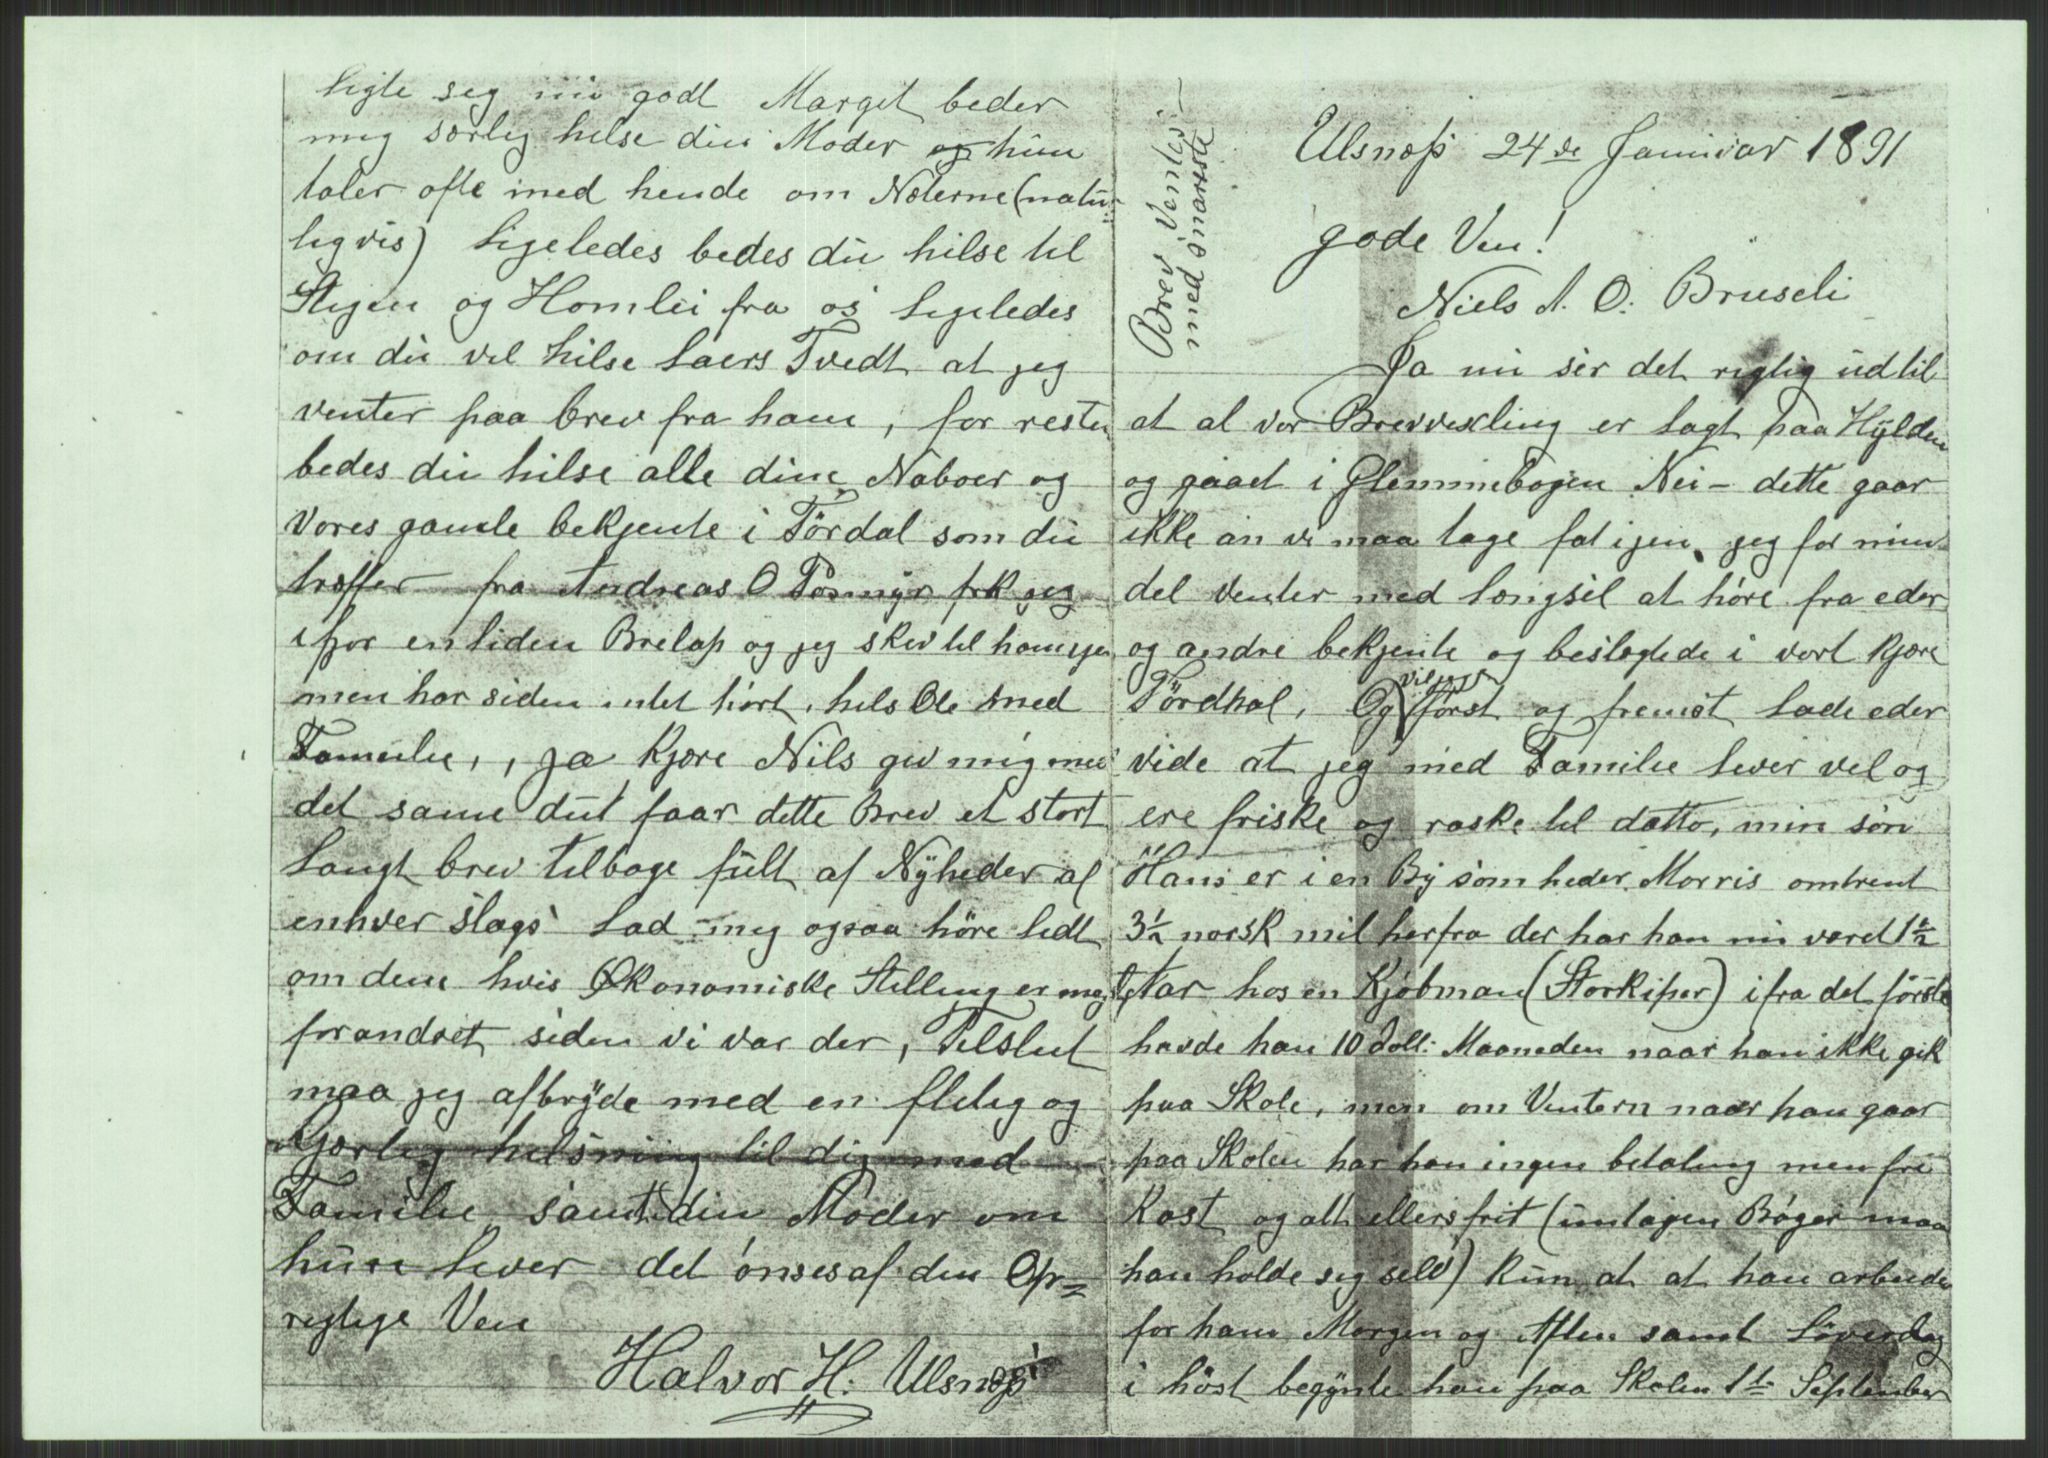 ligte seg nü godt Margit beder
mig særlig helse din Moder og hün
taler ofte med hende om Nøterne (natür-
ligvis) ligeledes bedes dü hilse til
Stigen og Homlei fra os ligeledes
om dü vil hilse Laers Tvedt at jeg
venter paa brev fra ham, for resten
bedes dü hilse alle dine Naboer og
vores gamle bekjente i Tördal som dü
træffer fra Andreas O Tosmyr fek jeg
ifjor en liden Brelap og jeg skev til ham igen
men har siden intet hört, hels Ole med
Familie, , ja kjære Nils giv mig med
det same düt faar dette Brev et stort
langt brev tilbage fült af Nÿheder af
enhver slags lad mig ogsaa höre lidt
om dem hvis Økonomiske Stilling er meget
forandret siden vi var der, Tilslut
maa jeg afbrÿde med en flitig og
kjærlig hilsning til dig med
Familie samt din Moder om
hün lever det önses af din Op-
rigtige Ven
Halvor H. Ulsnæs
Brev Ventes
med snareste
Ulsnæs 24de Janüar 1891
gode Ven!
Niels A. O. Bruseli
Ja nü ser det rigtig üd til
at al vor Brevvexling er lagt paa Hÿlden
og gaaet i Glemmebogen Nei - dette gaar
ikke an vi maa tage fat igen, jeg for min
del venter med længsel at höre fra eder
og andre bekjente og beslægtede i vort kjære
Tördhal, Og vil jeg först og fremst lade eder
vide at jeg med Familie lever vel og
ere friske og raske til datto, min sön
Hans er i en Bÿ som heder Morris omtrent
3½ norsk mil herfra der har han nü væred 1½
Aar hos en Kjöbman (Storkiper) ifra det förste
havde han 10 Doll: Maaneden naar han ikke gik
paa Skole, men om Vintern naar han gaar
paa Skolen har han ingen betaling men fri
Kost og alt ellers frit (üntagen Böger maa
han holde sig selv) kün at at han arbeider
for ham Morgen og Aften samt Löverdag
i höst begÿnte han paa Skolen 1te September